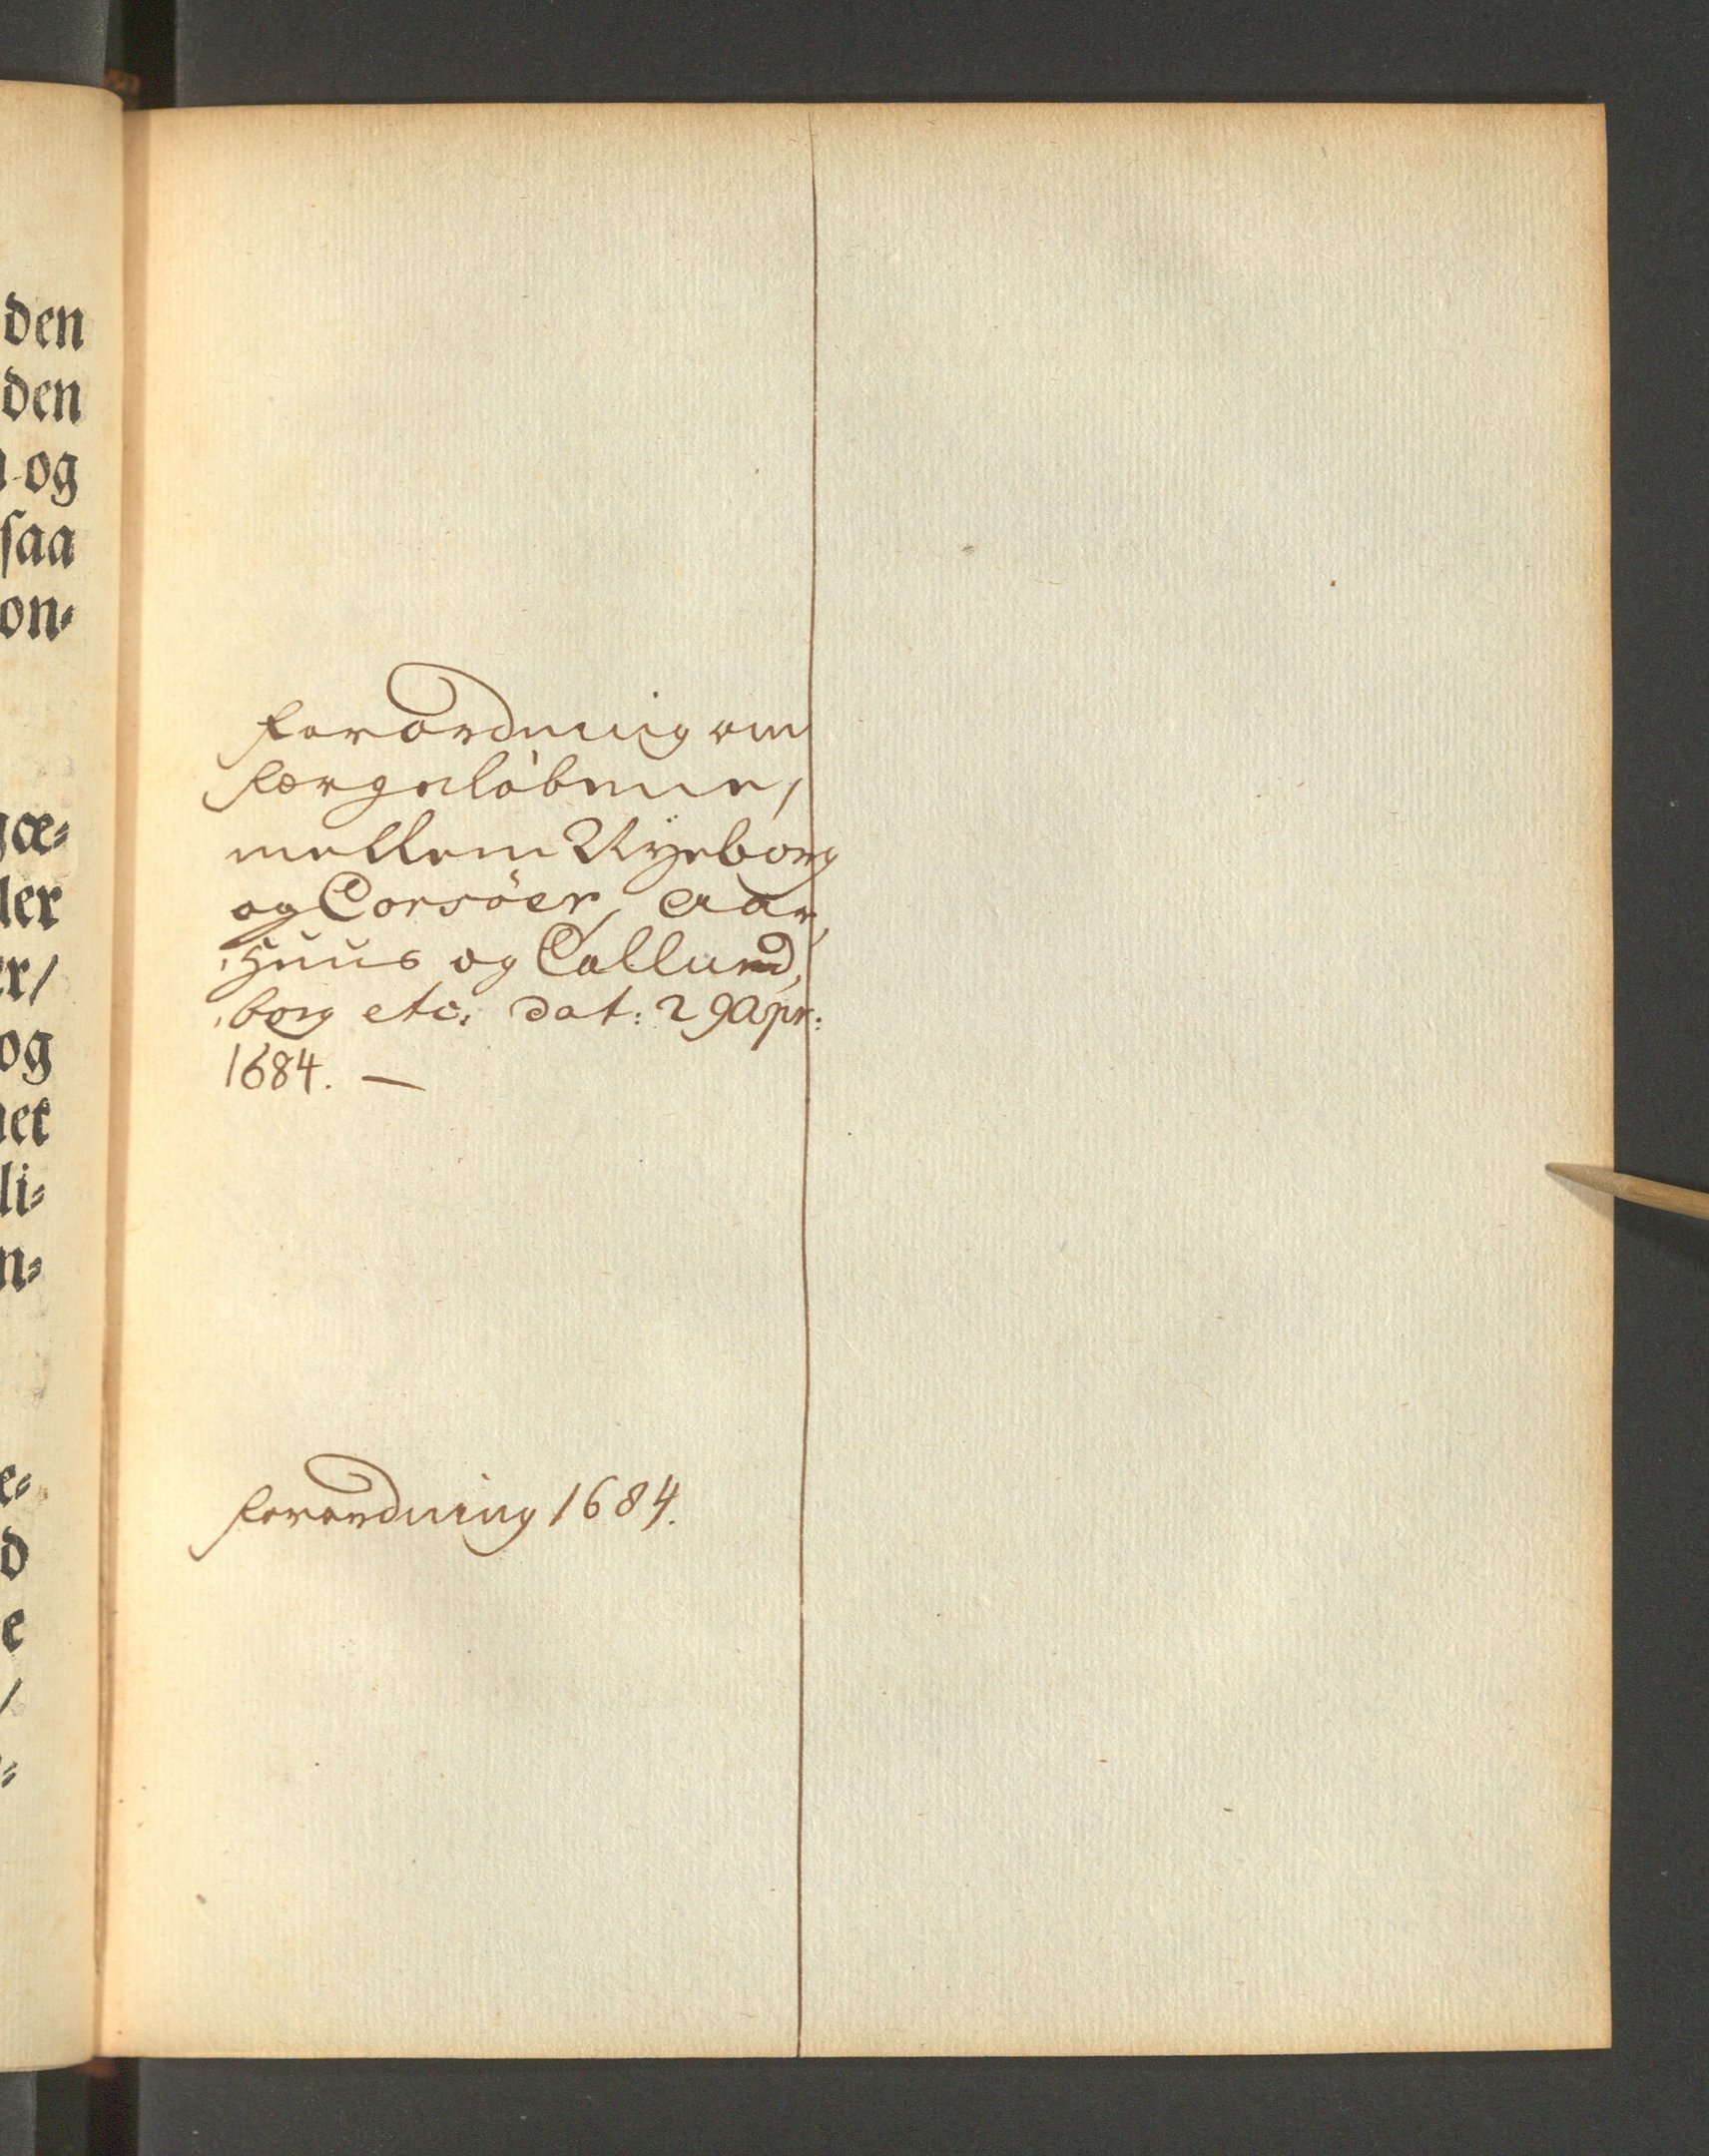 den
den
og
saa
on-
gæ-
ler
er/
og
net
li-
n-
e-
d
e
/
Forordning om
Færgeløbene,
mellem Nyeborg
og Corsöer, Aar,
,Huus og Callund,
,borg etc: dat: 29 Apr:
1684. —
Forordning 1684.